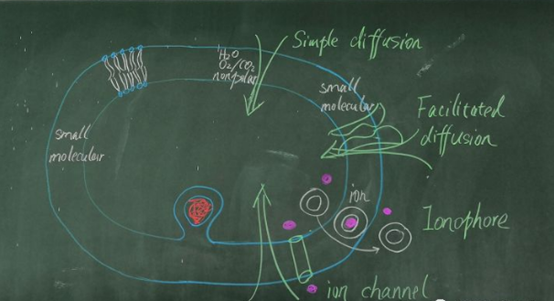 Simple diffusion
H2O
O2/CO2
nonpolar
small
molecular
Facilitated
diffusion
small
molecular
ion
Ionophore
ion channel